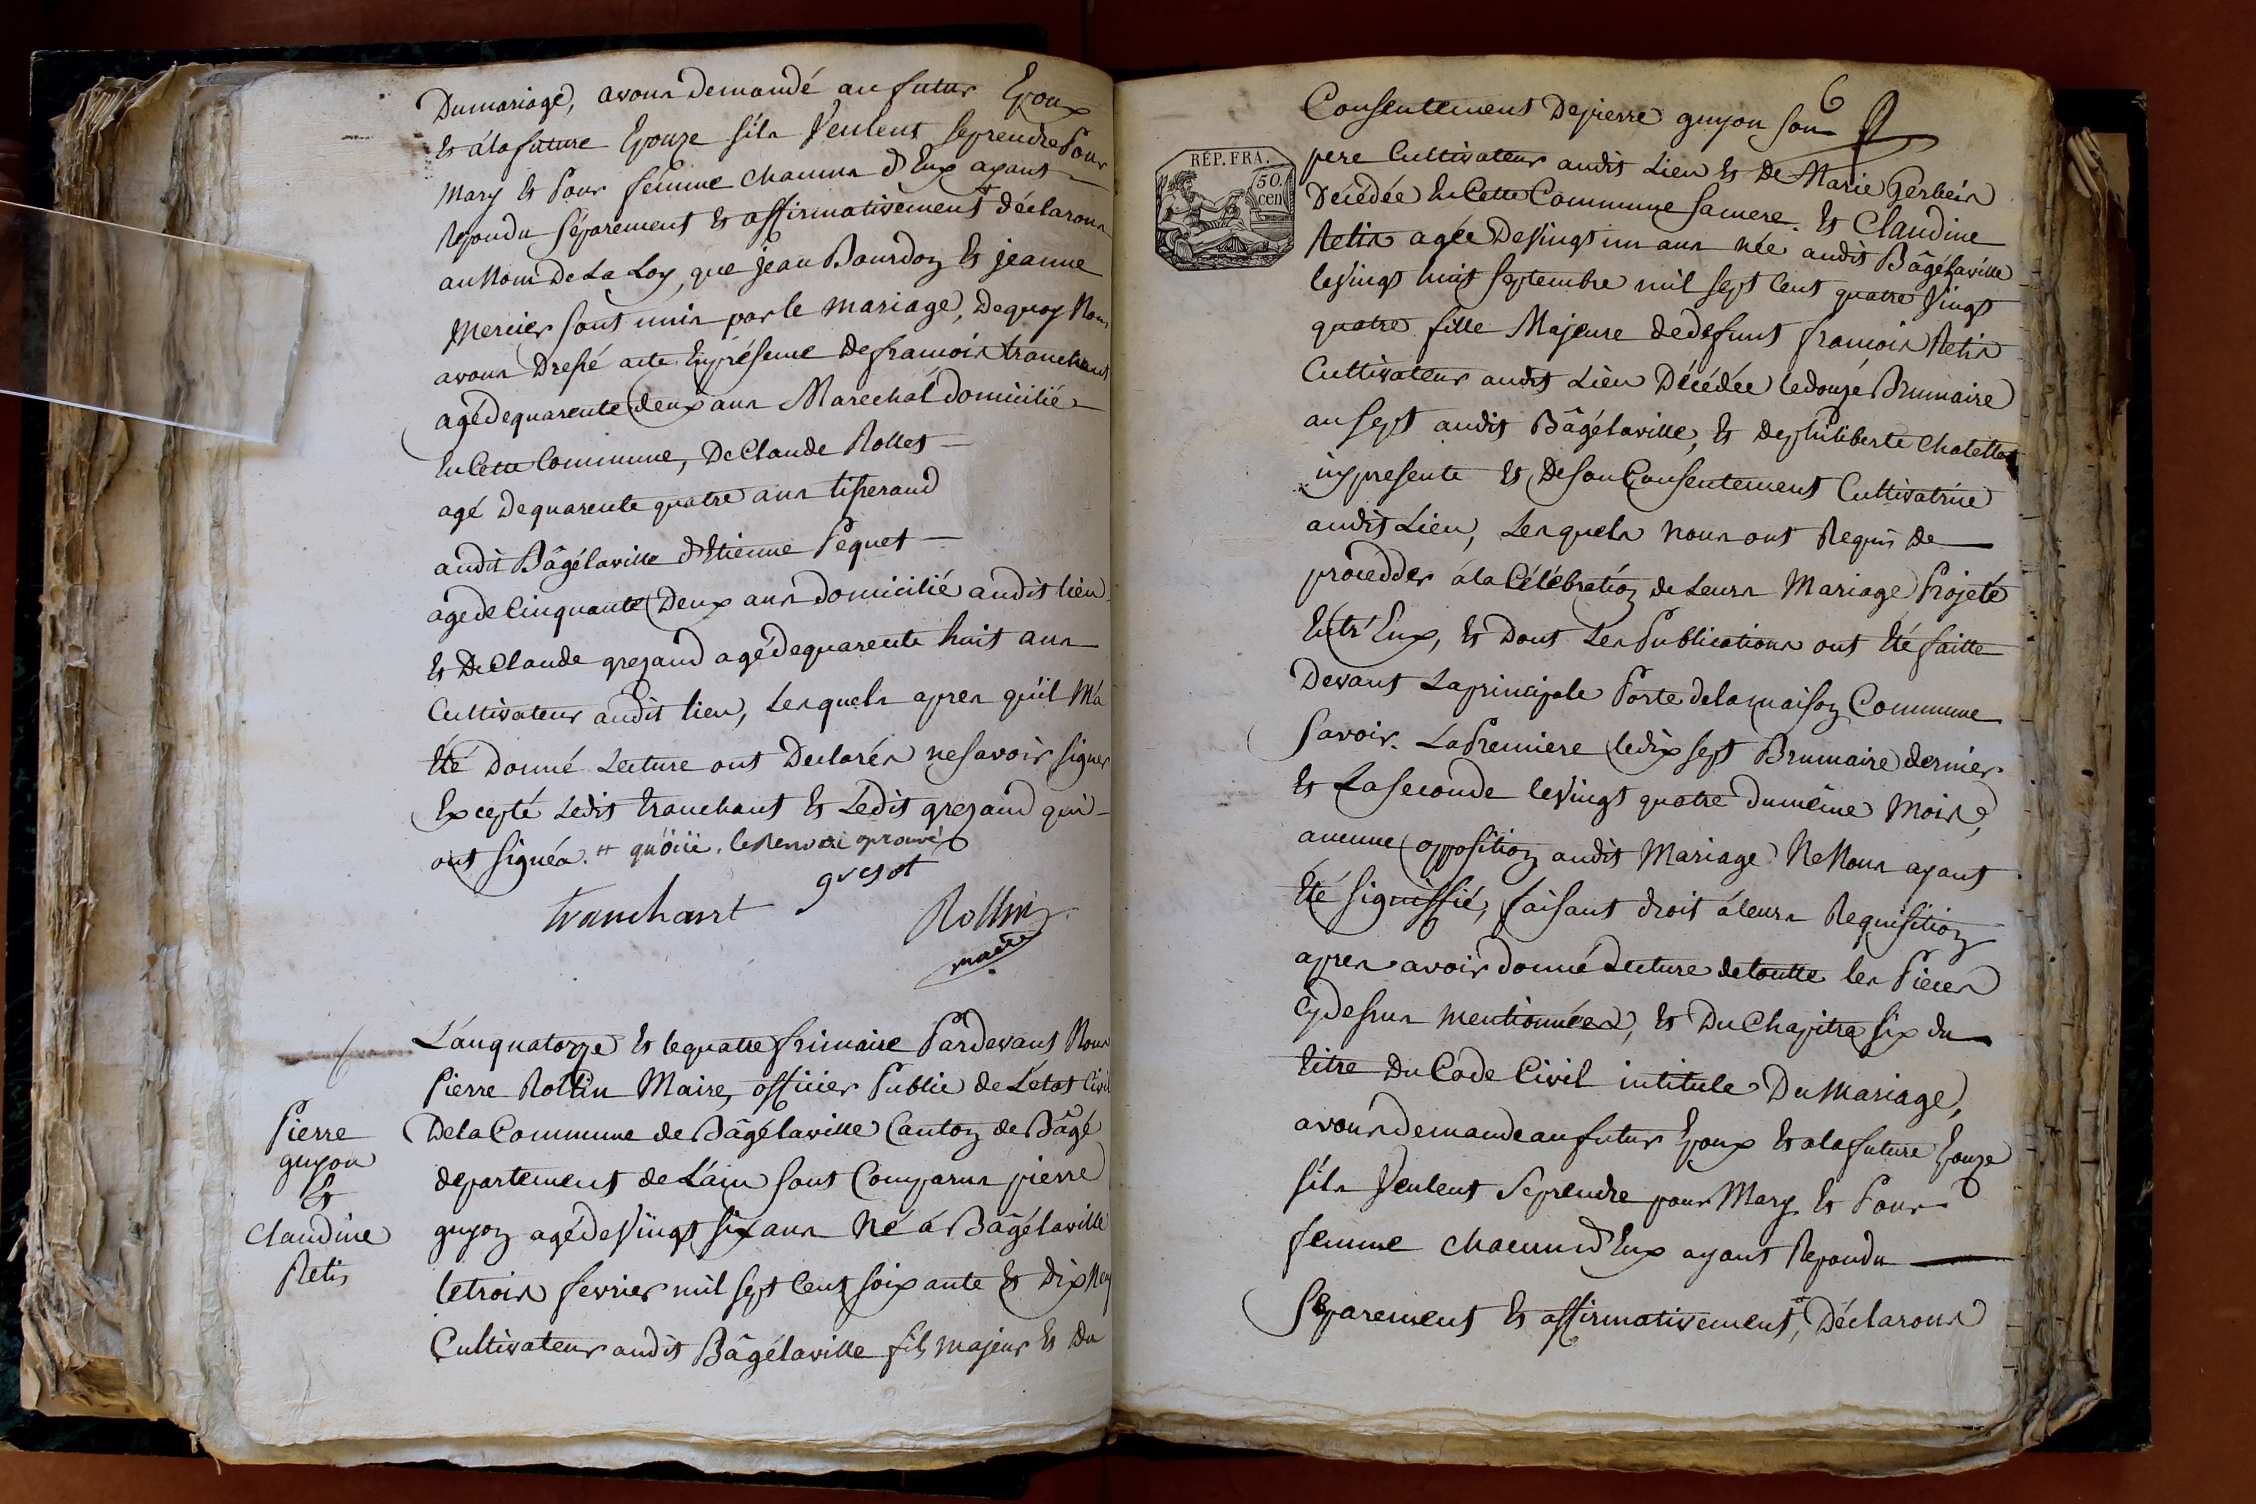 Du mariage, avons demandé au futur Epoux
Et á la future Epouze s'ils Veulent se prendre Pour
Mary Et Pour femme chacun d'Eux ayant
Repondu séparement Et affirmativement déclarons
au Nom De La Loy, que jean Bourdon Et jeanne
Mercier sont unis par le mariage, De quoy Nous
avons Dressé acte En présence de francois tranchant
agé de quarente deux ans Marechal domicilié
En Cette Commune, De Claude Rollet
agé De quarente quatre ans tisserand
audit Bâgélaville d'Etienne Pequet
age de Cinquante Deux ans domicilié audit lieu
Et De Claude grezaud agé de quarente huit ans
Cultivateur audit lieu, Lesquels apres qu'il M'a
Eté Donné Lecture ont Declarés ne savoir signer
Excepté Ledit tranchant Et Ledit grezaud qui
ont signés.
tranchant
gresot
Rollin
maire
Pierre
guyon
Et
Claudine
Retis
L'an quatorze Et le quattre frimaire Pardevant Nous
Pierre Rollin Maire, officier Public de L'etat Civil
De la Commune de Bâgélaville Canton de Bâgé
departement de L'ain sont Comparus pierre
guyon agé de Vingt six ans Né á Bâgélaville
le trois fevrier mil sept Cent soixante Et dix Neuf
Cultivateur audit Bâgélaville fils majeur Et Du
6
Consentement De pierre guyon son
RÉP. FRA.
50.
cen.
pere Cultivateur audit Lieu Et De Marie Gerbein
Décédée En Cette Commune sa mere. Et Claudine
Retis agée De Vingt un ans née audit Bâgélaville
le Vingt huit septembre mil sept Cent quatre Vingt
quatre fille Majeure de defunt francois Retis
Cultivateur audit Lieu Décédée le douze Brumaire
an sept audit Bâgélaville, Et de philiberte Chatellet
icy presente Et De son Consentement Cultivatrice
audit Lieu, Lesquels nous ont Requis De
procedder á la Célébration de Leurs Mariage Projeté
Entr'Eux, Et Dont Les Publications ont Eté faitte
Devant La principale Porte de la maison Commune
Savoir. La Premiere le dix sept Brumaire dernier
Et La seconde le Vingt quatre du même Mois,
aucune opposition audit Mariage Ne Nous ayant
Eté signiffié, faisant droit á leurs Requisition
apres avoir donné Lecture de toutte les Pieces
Cy dessus mentionnées, Et Du Chapitre six du
titre Du Code Civil intitule Du Mariage,
avons demande au futur Epoux Et a la future Epouze
s'ils Veulent se prendre pour Mary Et Pour
femme chacun d'Eux ayant Repondu
Séparement Et affirmativement, Déclarons